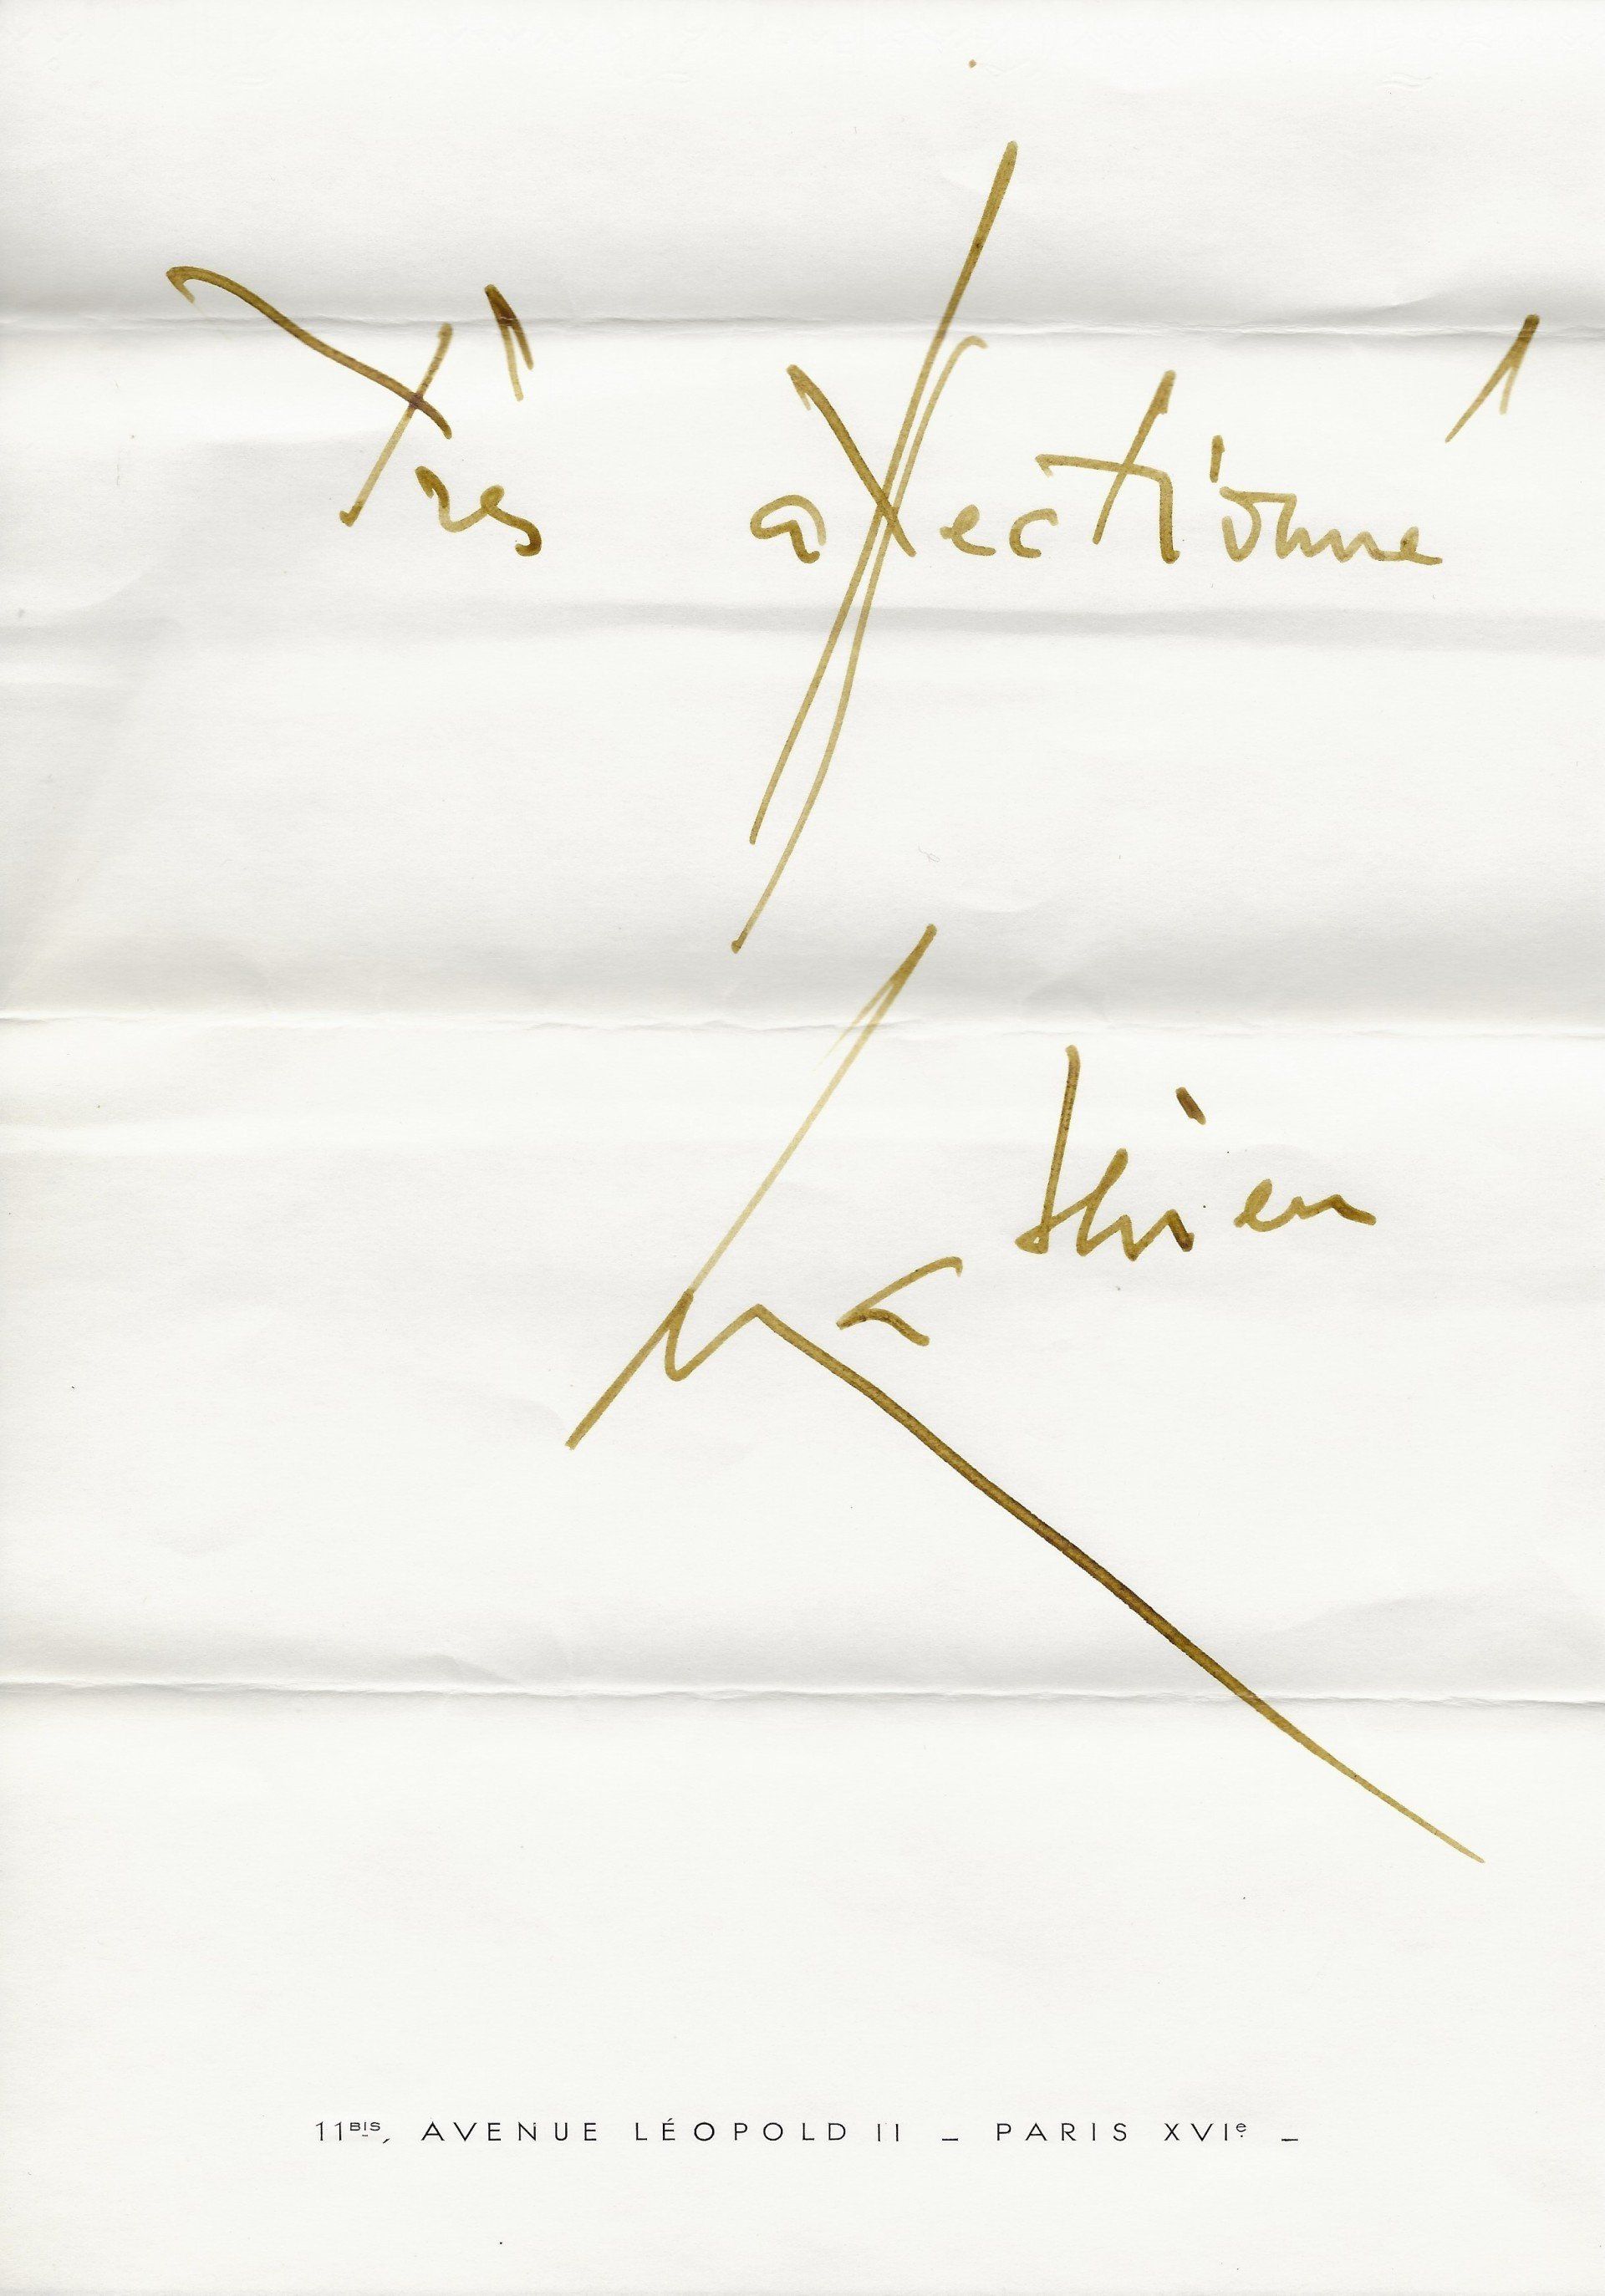 Très affectionné
Mathieu
11BIS, AVENUE LÉOPOLD II _ PARIS XVIe _